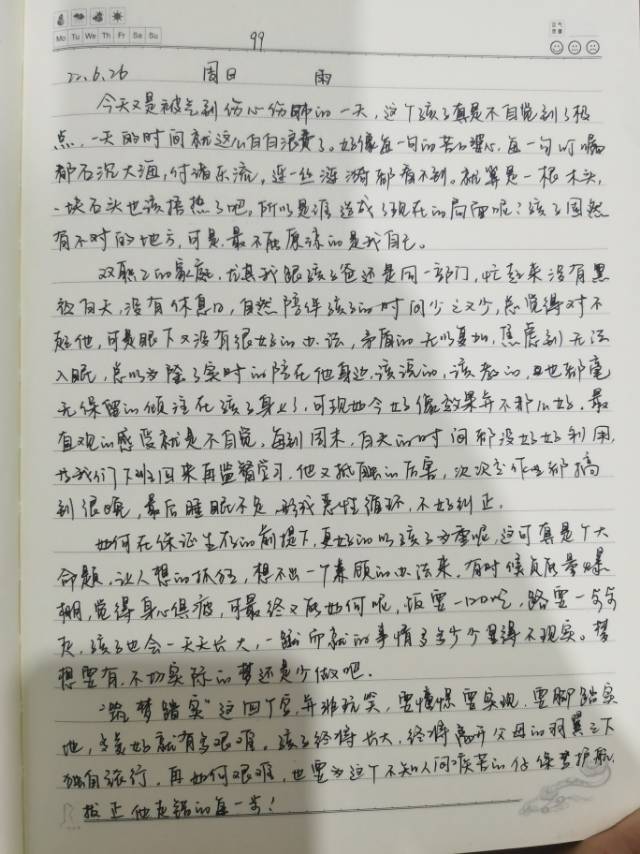 Mo Tu We Th Fr Sa Su
99
22.6.26 周日 雨
今天又是被气到伤心伤肺的一天,这个孩子真是不自觉到了极
点,一天的时间就这么白白浪费了。好像每一句的苦口婆心,每一句叮嘱
都石沉大海,付诸东流,连一丝涟漪都看不到。就算是一根木头,
一块石头也该捂热了吧,所以是谁造成了现在的局面呢?孩子固然
有不对的地方,可是,最不能原谅的是我自己。
双职工的家庭,尤其我跟孩子爸还是同一部门,忙起来没有黑
夜白天,没有休息日,自然陪伴孩子的时间少之又少,总觉得对不
起他,可是眼下又没有很好的办法,矛盾的无以复加,焦虑到无法
入眠,总以为除了实时的陪在他身边,该说的,该教的,也都毫
无保留的倾注在孩子身上了,可现如今好像效果并不那么好,最
直观的感受就是不自觉,每到周末,白天的时间都没好好利用,
我们下班回来再监督学习,他又抵触的厉害,次次写作业都搞
到很晚,最后睡眠不足,形成恶性循环,不好纠正。
如何在保证生存的前提下,更好的以孩子为重呢,这可真是个大
命题,让人想的抓狂,想不出一个兼顾的办法来,有时候负能量爆
棚,觉得身心俱疲,可最终又能如何呢,饭要一口口吃,路要一步步
走,孩子也会一天天长大,一蹴而就的事情多多少少显得不现实。梦
想要有,不切实际的梦还是少做吧。
"筑梦踏实"这四个字,并非玩笑,要憧憬要实现,要脚踏实
地,多美好就有多艰难。孩子终将长大,终将离开父母的羽翼之下
独自旅行,再如何艰难,也要为这个不知人间疾苦的仔保驾护航,
扳正他走错的每一步!